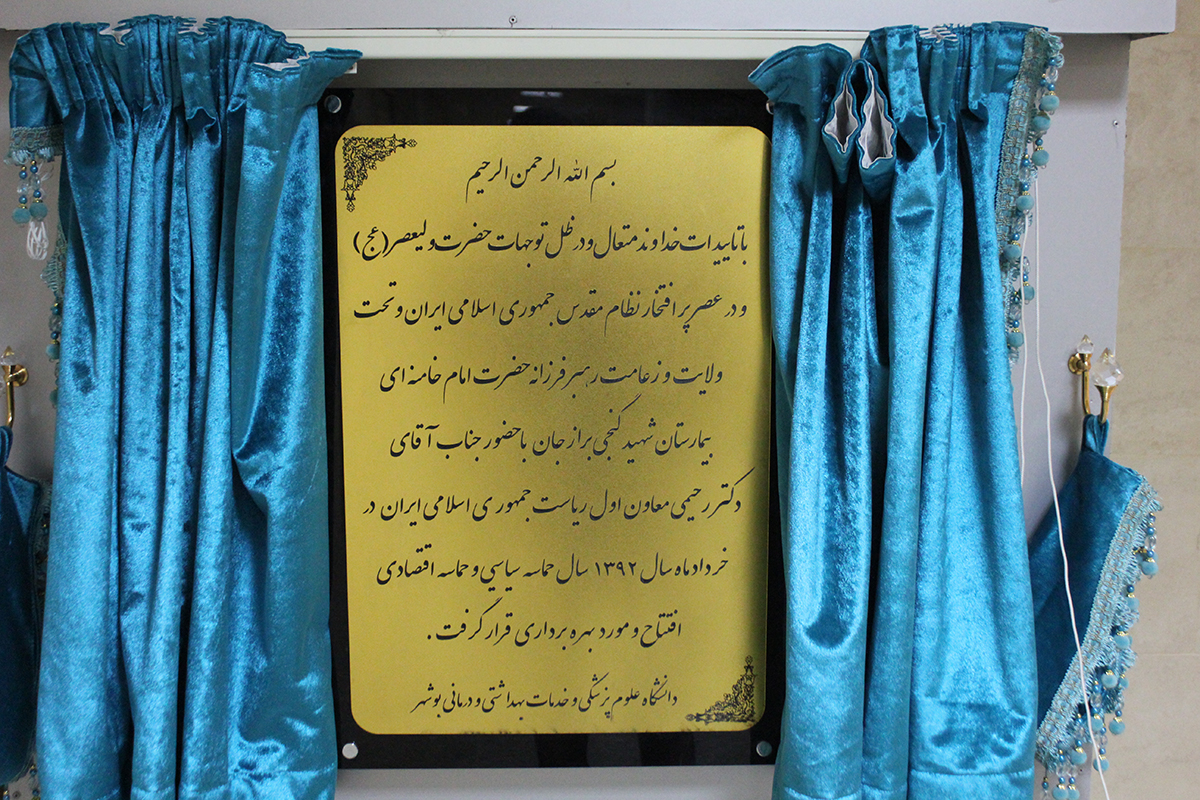 بسم الله الرحمن الرحیم
با تاییدات خداوند متعال و در ظل توجهات حضرت ولیعصر (عج)
و در عصر پر افتخار نظام مقدس جمهوری اسلامی ایران و تحت
ولایت و زعامت رهبر فرزانه حضرت امام خامنه ای
بیمارستان شهید گنجی برازجان با حضور جناب آقای
دکتر رحیمی معاون اول ریاست جمهوری اسلامی ایران در
خرداد ماه سال ۱۳۹۲ سال حماسه سیاسی و حماسه اقتصادی
افتتاح و مورد بهره برداری قرار گرفت .
دانشگاه علوم پزشکی و خدمات بهداشتی و درمانی بوشهر